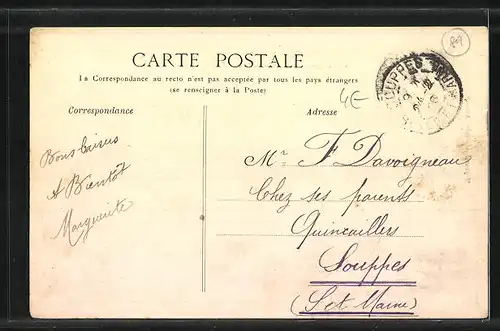 CARTE POSTALE
La Correspondance au recto n'est pas acceptée par tous les pays étrangers
(se renseigner à la Poste)
Correspondance
Adresse
4E
SOUPPES
Bons baisers
A Bientôt
Marguerite
Mr F Davoigneau
Chez ses parents
Quincaillers
Souppes
(S et Marne)